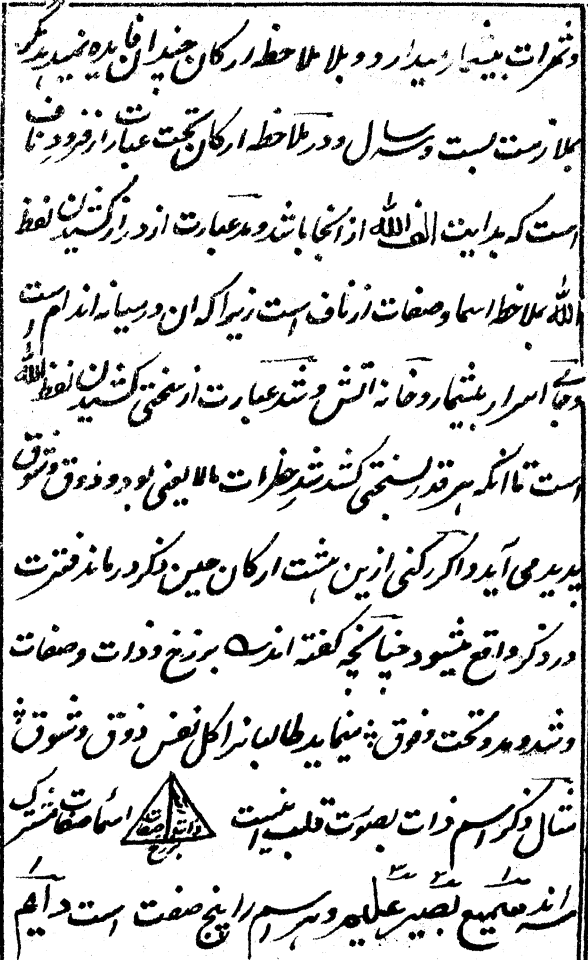 وثمرات بیشمار میدارد و بلا ملاحظه ارکان چندان فایده نمیدهد مگر
بملازمت بست و سه سال و در ملاحظه ارکان تحت عبارت از فرود ناف
است که بدایت الف الله از انجا باشد و مد عبارت از دراز کشیدن لفظ
الله بملاحظه اسما و صفات از ناف است زیرا که ان درمیانه اندام است
و جائے اسرار بیشمار و خانه اتش و شد عبارت از سختی کشیدن لفظ الله
است تا انکه هر قدر بسختی کشد شد خطرات مالایعنی بود و ذوق و شوق
پدید می آید و اگر رکنی ازین هشت ارکان حین ذکر در ماند فترت
در ذکر واقع میشود چنانچه گفته اند برزخ و ذات و صفات
و شد و مد و تحت و فوق مینماید طالبانرا کل نفس ذوق و شوق
مثال ذکر اسم ذات بصورت قلب اینست ذات صفات برزخ اسما صفات مشترک
سه اند سمیع بصیر علیم و هر اسم را پنج صفت است دایم